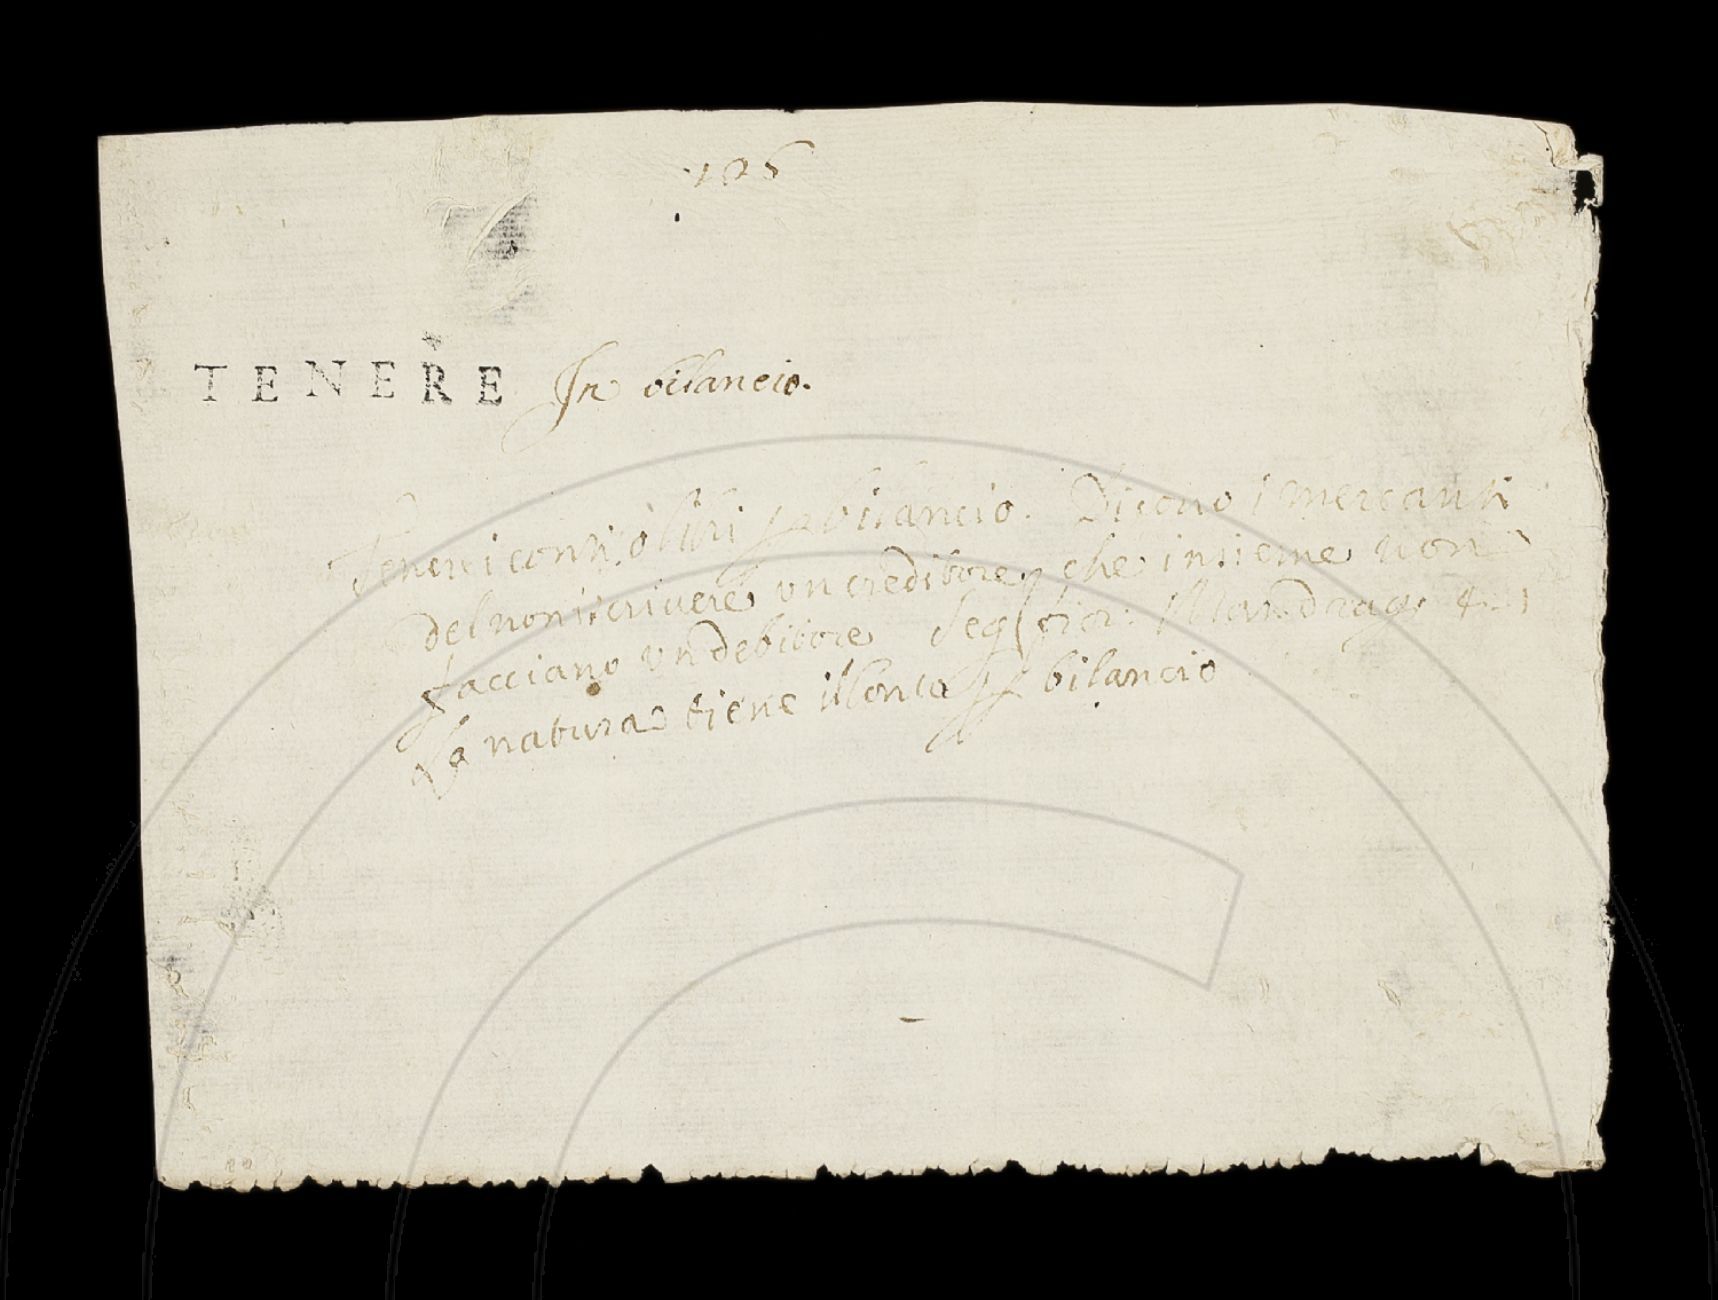 126
TENERE In bilancio.
Tenere i conti, o libri per bilancio. Dicono i mercanti
del non iscrivere un creditore, che insieme non
facciano un debitore Seg. fior: Mandrag. 4. 1
la natura tiene il conto per bilancio